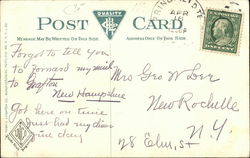 QUALITY
POST CARD
MESSAGE MAY BE WRITTEN ON THIS SIDE
ADDRESS ONLY ON THIS SIDE
APR
Forgot to tell you
to forward my mail
to Grafton
New Hampshire
Got here on time
just had my dinner
fine day
Mrs Geo W Dev
New Rochelle
N.Y
28 Elm St